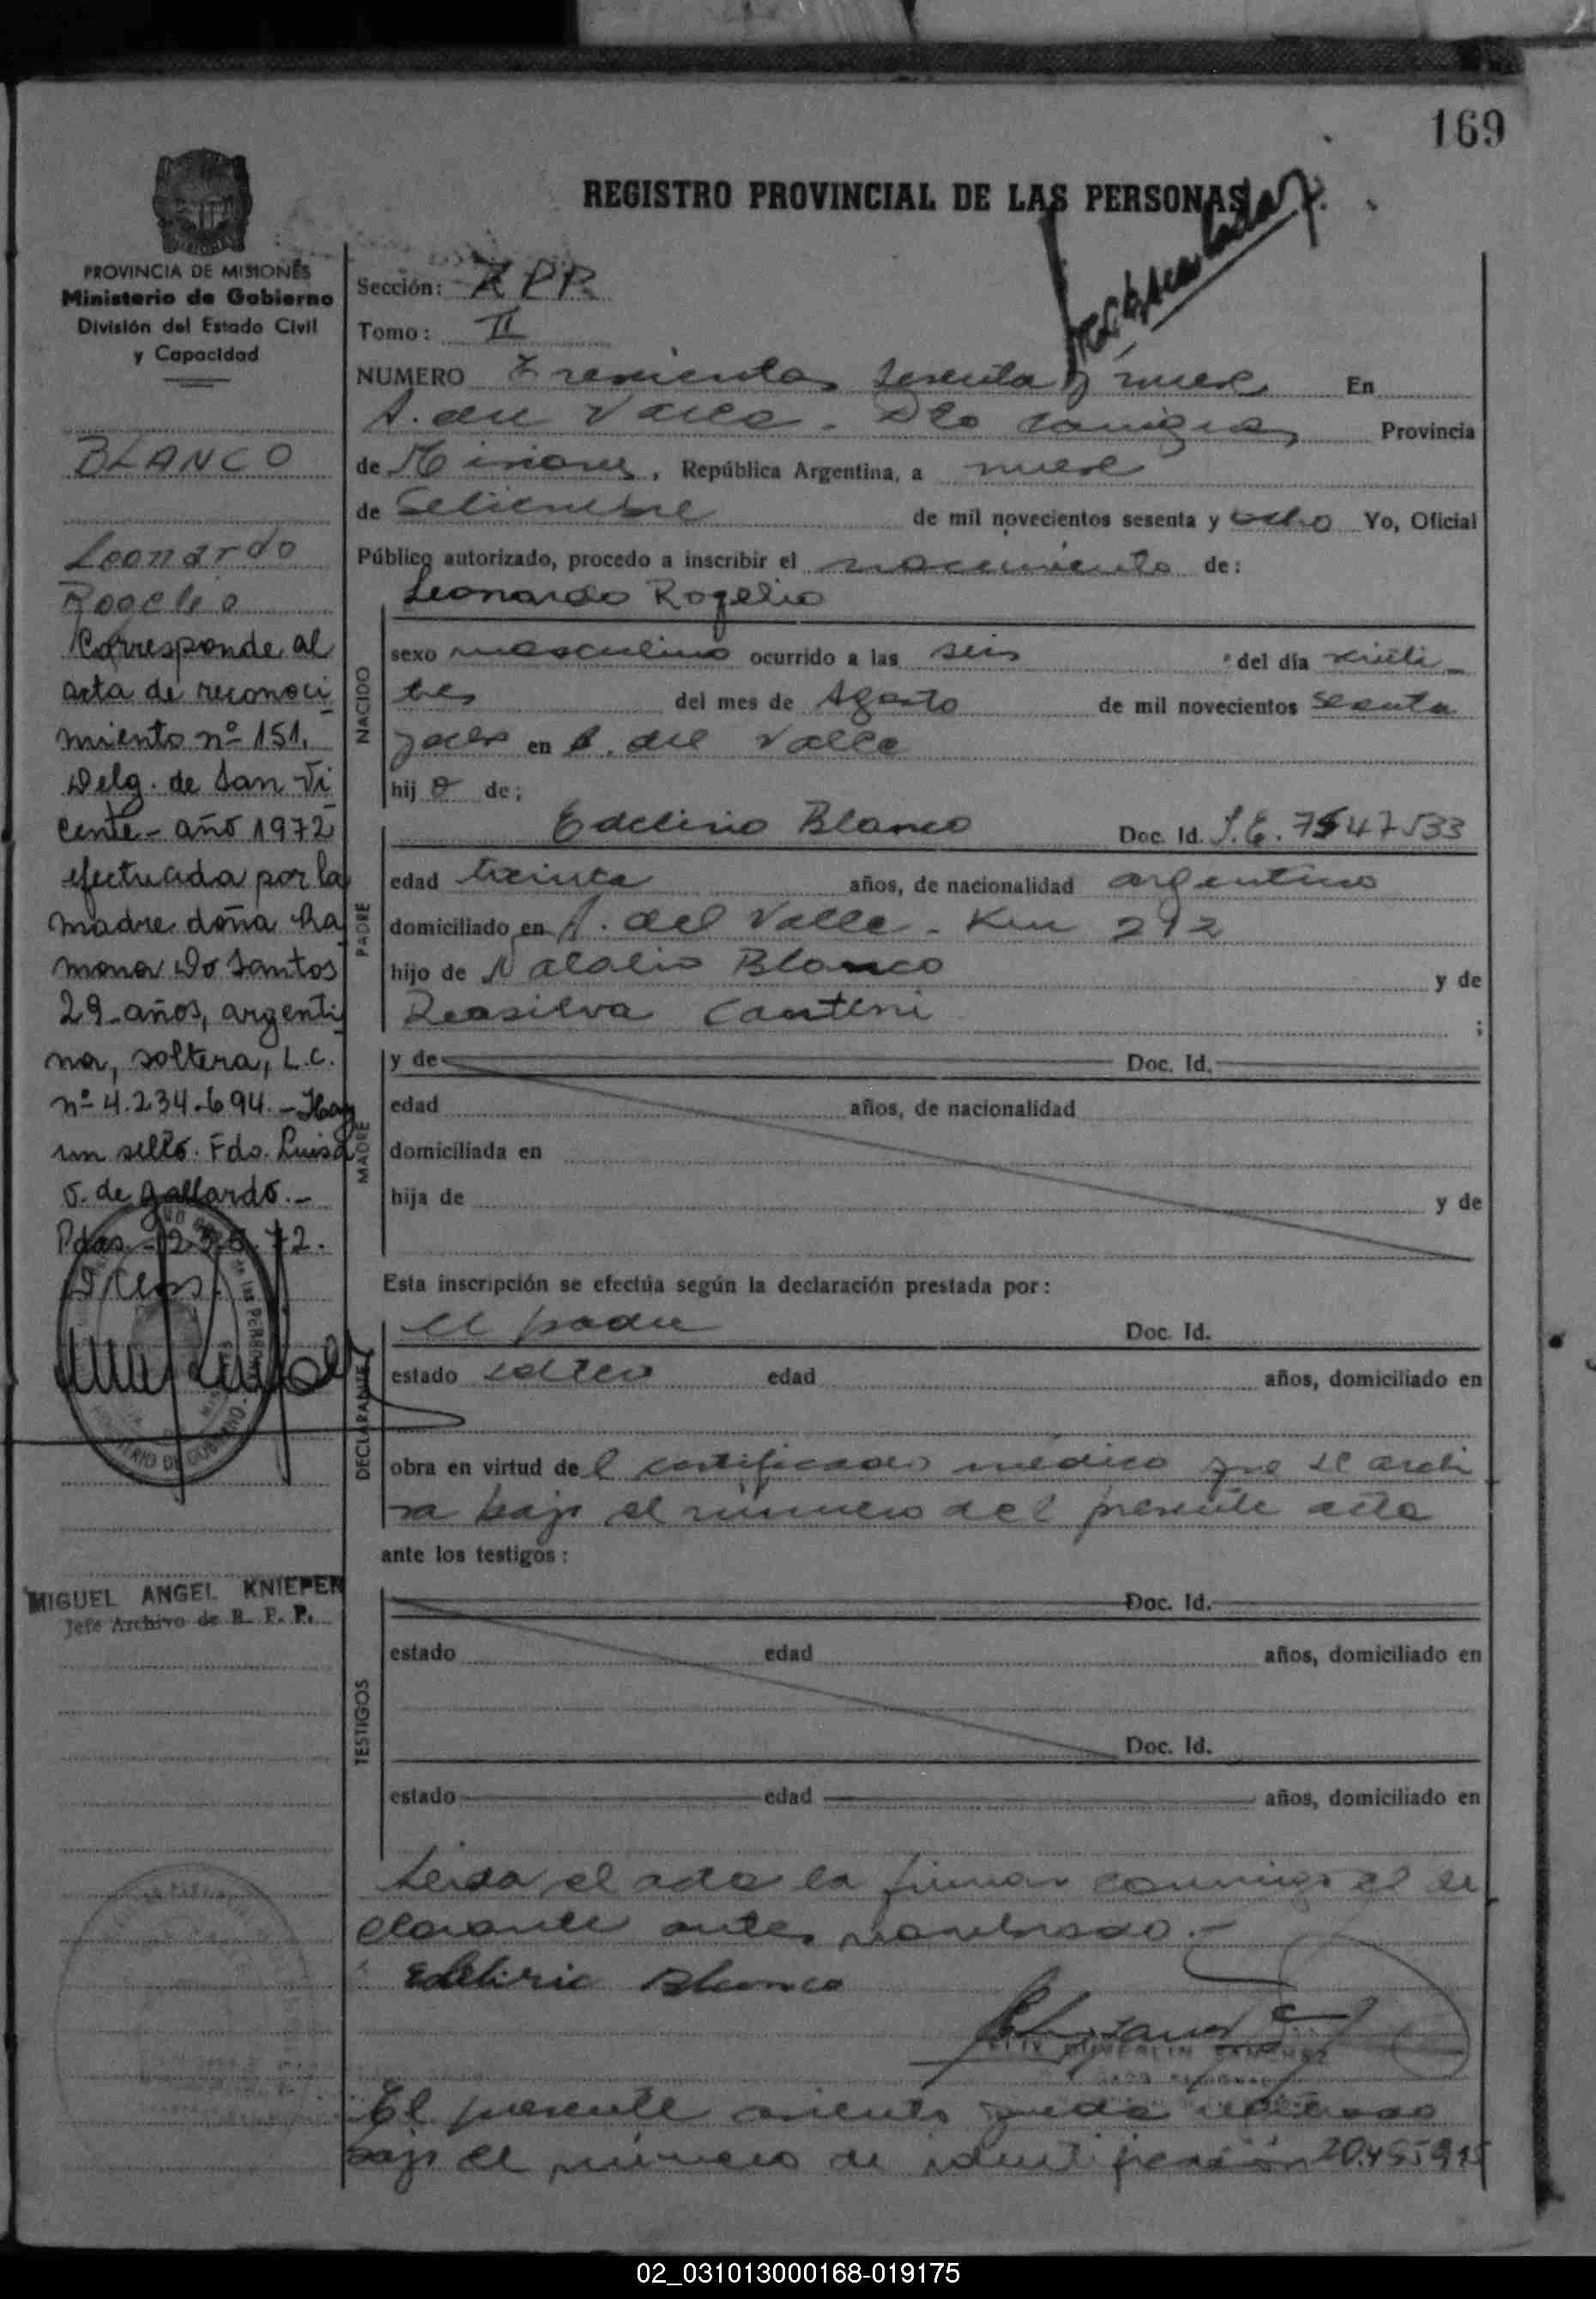 169
REGISTRO PROVINCIAL DE LAS PERSONAS
PROVINCIA DE MISIONES
Ministerio de Gobierno
División del Estado Civil
y Capacidad
BLANCO
Leonardo
Rogelio
Corresponde al
acta de reconoci
miento nº 151,
Delg. de San Vi
cente - año 1972
efectuada por la
madre doña Ra
mona Do Santos
29 años, argenti
na, soltera, L.C.
nº 4.234.694. - Hay
un sello. Fdo. Luisa
O. de Gallardo.-
Pdas.
MIGUEL ANGEL KNIEPER
Jefe Archivo de R. P. P.
Sección: R P P.
Tomo: II
NUMERO Trescientos sesenta y nueve En
A. del Valle - Dto Cainguas Provincia
de Misiones, República Argentina, a nueve
de Setiembre de mil novecientos sesenta y ocho Yo, Oficial
Público autorizado, procedo a inscribir el nacimiento de:
Leonardo Rogelio
NACIDO
sexo masculino ocurrido a las seis del día veinti
tres del mes de Agosto de mil novecientos sesenta
y ocho en A. del Valle
hijo de:
PADRE
Edelirio Blanco Doc. Id. L.E. 7547533
edad treinta años, de nacionalidad argentino
domiciliado en A. del Valle - Km 292
hijo de Natalio Blanco y de
Rosilva Canteni ;
MADRE
y de Doc. Id.
edad años, de nacionalidad
domiciliada en
hija de y de
Esta inscripción se efectúa según la declaración prestada por:
DECLARANTE
el padre Doc. Id.
estado soltero edad años, domiciliado en
obra en virtud del certificado médico que se archi
va bajo el número del presente acta
ante los testigos:
TESTIGOS
Doc. Id.
estado edad años, domiciliado en
Doc. Id.
estado edad años, domiciliado en
Leida el acta la firman conmigo el de
clarante antes nombrado.-
Edelirio Blanco
El presente asiento queda
bajo el número de identificación 20.455.915
02_031013000168-019175